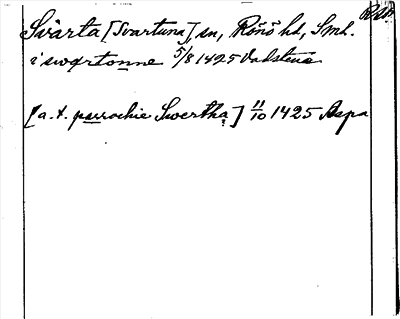 Svärta [Svartuna] sn, Rönö hd, Sml.
i swartonne 5/8 1425 Vadstena
[a. t. parrochie Swertha] 11/10 1425 Aspa